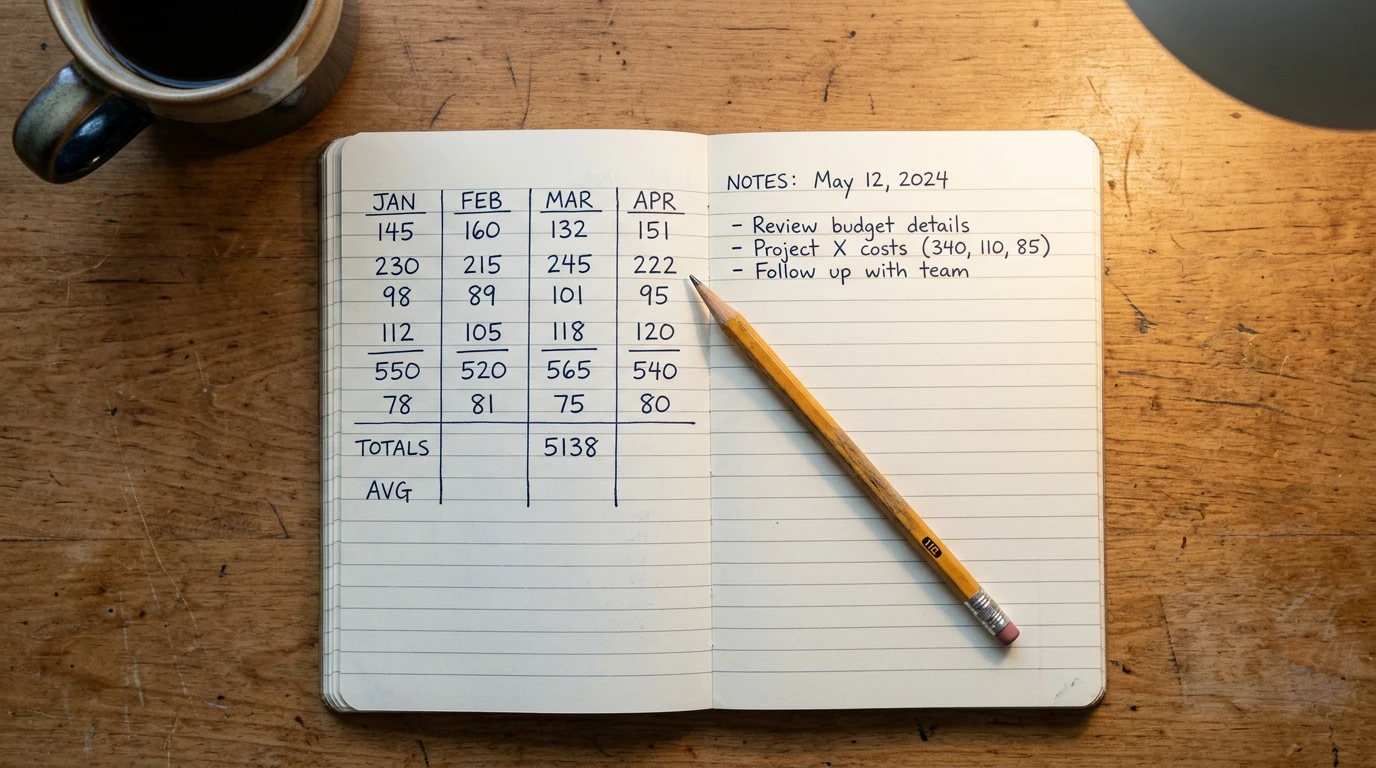 JAN FEB MAR APR
145 160 132 151
230 215 245 222
98 89 101 95
112 105 118 120
550 520 565 540
78 81 75 80
TOTALS 5138
AVG
NOTES: May 12, 2024
- Review budget details
- Project X costs (340, 110, 85)
- Follow up with team